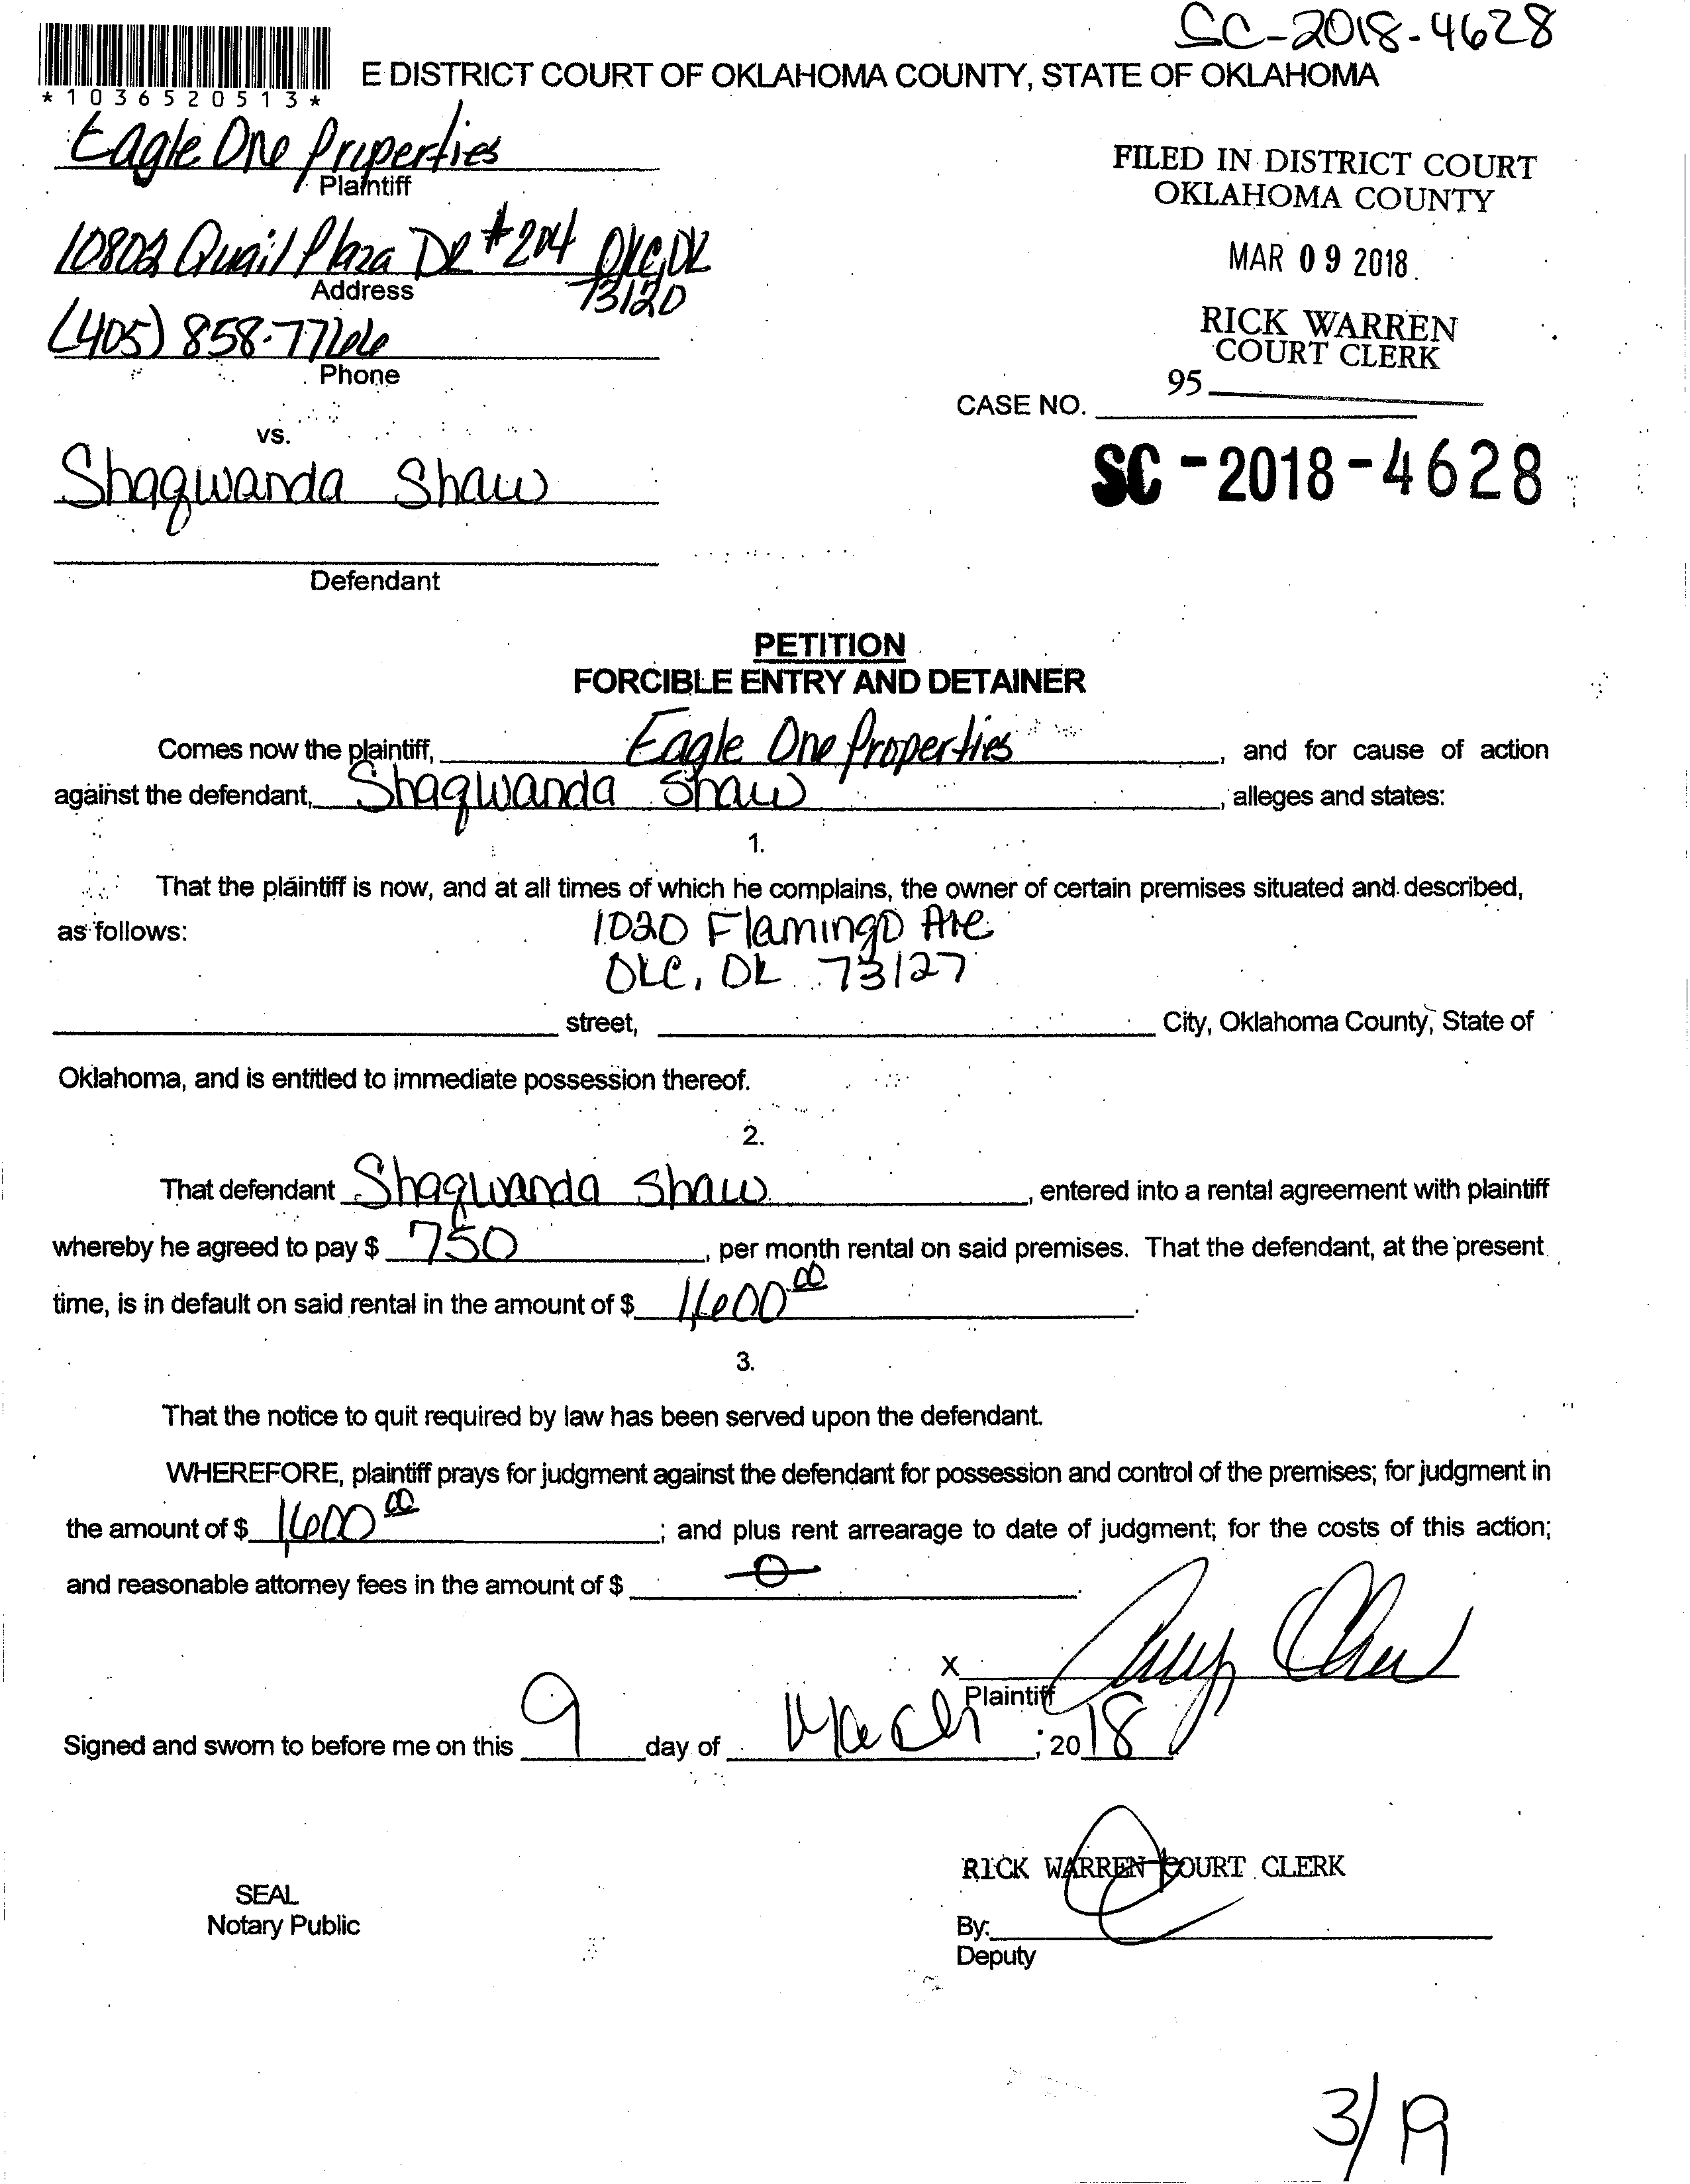 SC-2018-4628
E DISTRICT COURT OF OKLAHOMA COUNTY, STATE OF OKLAHOMA
*1036520513*
Eagle One Properties
Plaintiff
FILED IN DISTRICT COURT
OKLAHOMA COUNTY
10802 Quail Plaza DR #204 OKC, OK
73120
Address
MAR 09 2018
(405) 858-7766
Phone
RICK WARREN
COURT CLERK
95
CASE NO.
vs.
Shaqwanda Shaw
SC-2018-4628
Defendant
PETITION
FORCIBLE ENTRY AND DETAINER
Comes now the plaintiff, Eagle One Properties, and for cause of action
against the defendant, Shaqwanda Shaw, alleges and states:
1.
That the plaintiff is now, and at all times of which he complains, the owner of certain premises situated and described,
as follows: 1020 Flamingo Ave
OKC, OK 73127
street, City, Oklahoma County, State of
Oklahoma, and is entitled to immediate possession thereof.
2.
That defendant Shaqwanda Shaw, entered into a rental agreement with plaintiff
whereby he agreed to pay $ 750, per month rental on said premises. That the defendant, at the present
time, is in default on said rental in the amount of $ 1,600.00.
3.
That the notice to quit required by law has been served upon the defendant.
WHEREFORE, plaintiff prays for judgment against the defendant for possession and control of the premises; for judgment in
the amount of $ 1,600.00; and plus rent arrearage to date of judgment; for the costs of this action;
and reasonable attorney fees in the amount of $ 0.
X
Plaintiff
Signed and sworn to before me on this 9 day of March, 2018
RICK WARREN COURT CLERK
SEAL
Notary Public
By:
Deputy
3/19